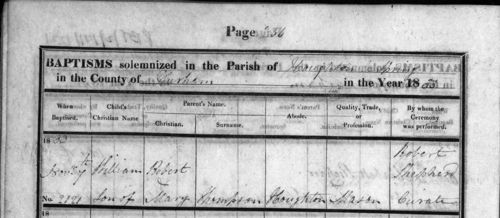 Page 256
BAPTISMS solemnized in the Parish of Houghton le Spring
in the County of Durham in the Year 18
When Baptized. Child's Christian Name Parent's Name. Christian. Surname. Abode. Quality, Trade, or Profession. By whom the Ceremony was performed.
18
William Robert Robert Shepherd
No. Son of Mary Thompson Houghton Mason Curate